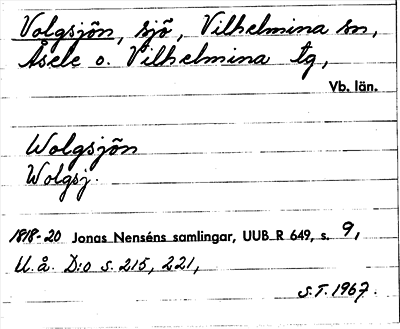 Volgsjön, sjö, Vilhelmina sn,
Åsele o. Vilhelmina tg,
Vb. län.
Wolgsjön
Wolgsj.
1818-20 Jonas Nenséns samlingar, UUB R 649, s. 9,
U.å. D:o s. 215, 221,
S.T. 1967.